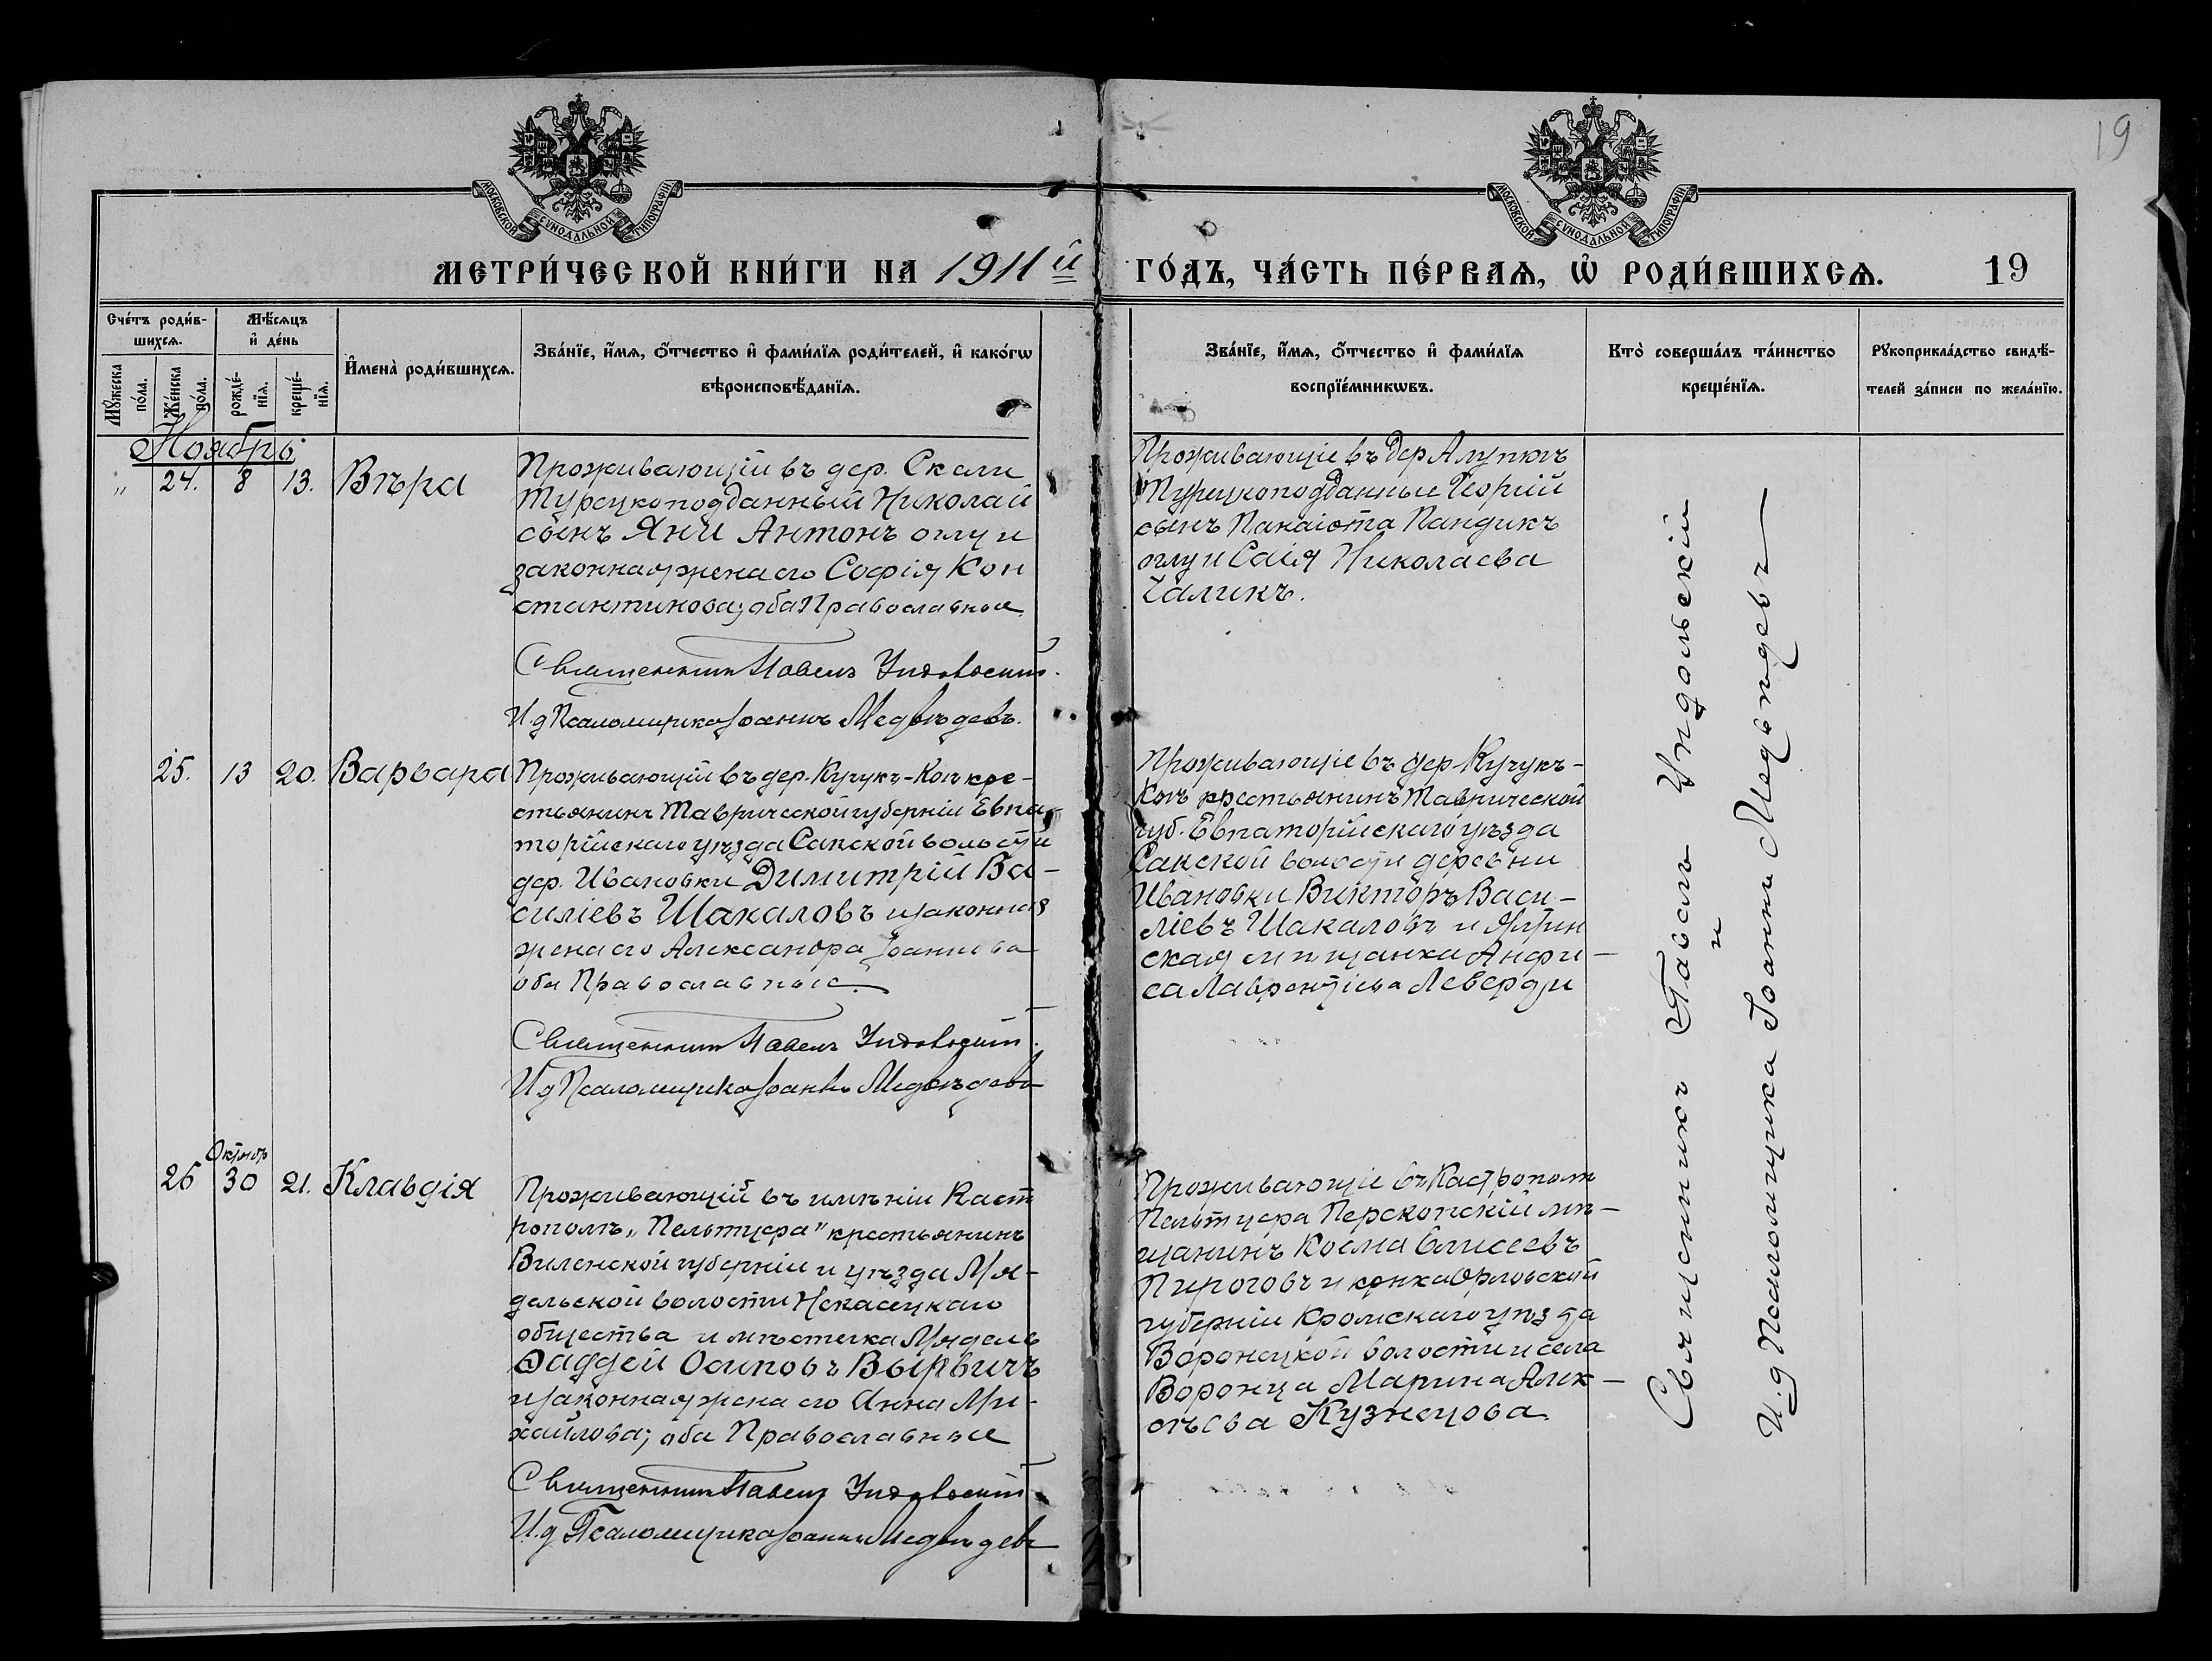 19
МОСКОВСКОЙ СѴНОДАЛЬНОЙ ТИПОГРАФІИ
МОСКОВСКОЙ СѴНОДАЛЬНОЙ ТИПОГРАФІИ
МЕТРИ́ЧЕСКОЙ КНИ́ГИ НА 1911 й ГО́ДЪ, ЧА́СТЬ ПЕ́РВАѦ, Ѽ РОДИ́ВШИХСѦ. 19
Сче́тъ роди́в-
шихсѧ.
Мꙋ́жеска по́ла.
Же́нска по́ла.
Мѣ́сѧцъ
и҆ де́нь
рожде́-
нїѧ.
креще́-
нїѧ.
И҆мена̀ роди́вшихсѧ.
Зва́нїе, и҆́мѧ, ѻ҆́тчество и҆ фами́лїѧ роди́телей, и҆ како́гѡ
вѣроисповѣ́данїѧ.
Зва́нїе, и҆́мѧ, ѻ҆́тчество и҆ фами́лїѧ
воспрїе́мникѡвъ.
Кто̀ соверша́лъ та́инство
креще́нїѧ.
Рꙋкоприкла́дство свидѣ́-
телей за́писи по жела́нїю.
Ноябрь
" 24. 8 13. Вѣра
Проживающій въ дер. Скели
Турецкоподданный Николай
сынъ Яни Антонъ оглу и
законная жена его Софія Кон
стантинова; оба Православные.
Священникъ Павелъ Ундольскій.
И. д. Псаломщика Іоаннъ Медвѣдевъ.
Проживающіе въ дер Алупкѣ
Турецкоподданные Георгій
сынъ Панаіота Пандикъ
оглу и Саія Николаева
Чаликъ.
25. 13 20. Варвара
Проживающій въ дер. Кучукъ-Кой кре-
стьянинъ Таврической губерніи Евпа-
торійскаго уѣзда Сакской волости
дер. Ивановки Димитрій Ва-
силіевъ Шакаловъ и законная
жена его Александра Іоаннова
оба Православные.
Священникъ Павелъ Ундольскій.
И. д. Псаломщика Іоаннъ Медвѣдевъ
Проживающіе въ дер Кучукъ-
Кой крестьянинъ Таврической
губ. Евпаторійскаго уѣзда
Сакской волости деревни
Ивановки Викторъ Васи-
ліевъ Шакаловъ и Ялтин
ская мѣщанка Анфи-
са Лаврентіева Леверди
26 Октябр 30 21. Клавдія
Проживающій въ имѣніи Каст
рополь „Пельтцера" крестьянинъ
Виленской губерніи и уѣзда Мя-
дельской волости Некасецкаго
общества и мѣстечка Мядель
Ѳаддей Осиповъ Вырвичъ
и законная жена его Анна Ми-
хайлова; оба Православные
Священникъ Павелъ Ундольскій
И. д. Псаломщика Іоаннъ Медвѣдевъ
Проживающіе въ Кастрополѣ
Пельтцера Перекопскій мѣ-
щанинъ Косма Елисеевъ
Пироговъ и кр-нка Орловской
губерніи Кромскаго уѣзда
Воронецкой волости и села
Воронца Марина Алек-
сѣева Кузнецова.
Священникъ Павелъ Ундольскій
и
И. д Псаломщика Іоаннъ Медвѣдевъ